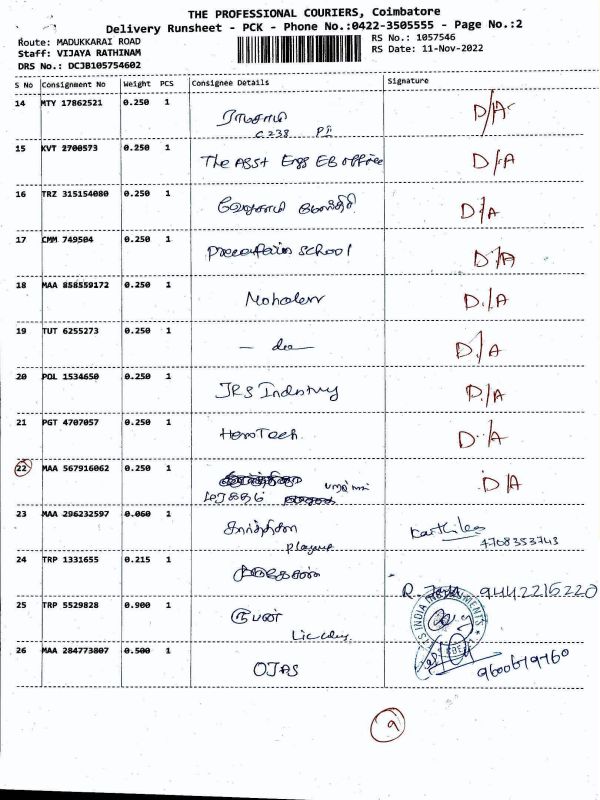 THE PROFESSIONAL COURIERS, Coimbatore
Delivery Runsheet - PCK - Phone No.:0422-3505555 - Page No.:2
Route: MADUKKARAI ROAD
Staff: VIJAYA RATHINAM
DRS No.: DCJB105754602
RS No.: 1057546
RS Date: 11-Nov-2022
S No Consignment No Weight PCS Consignee Details Signature
14 MTY 17862521 0.250 1 D/A
C 238
15 KVT 2700573 0.250 1 The ASST Engg EB office D/A
16 TRZ 315154080 0.250 1 D/A
17 CMM 749504 0.250 1 school D/A
18 MAA 858559172 0.250 1 D/A
19 TUT 6255273 0.250 1 — do — D/A
20 POL 1534650 0.250 1 JRS Industry D/A
21 PGT 4707057 0.250 1 HemoTech D/A
22 MAA 567916062 0.250 1 D/A
23 MAA 296232597 0.060 1 Karthika
24 TRP 1331655 0.215 1 9442215220
25 TRP 5529828 0.900 1
26 MAA 284773807 0.500 1 OJAS 9600679760
9